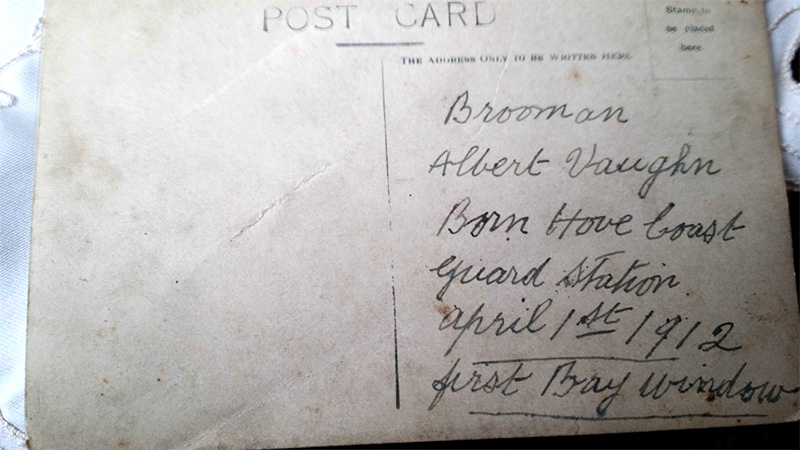 POST CARD
Stamp to
be placed
here.
THE ADDRESS ONLY TO BE WRITTEN HERE.
Brooman
Albert Vaughn
Born Hove Coast
Guard Station
April 1st 1912
first Bay window